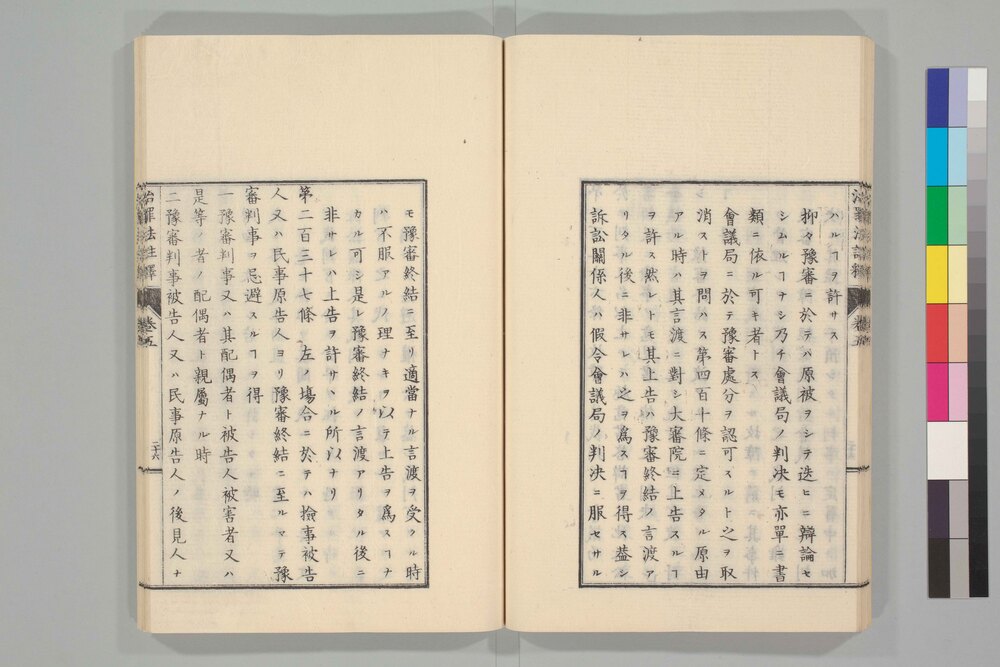 治罪法註釋 卷五
ハルヿヲ許サス
抑々豫審ニ於テハ原被ヲシテ迭ヒニ辯論セ
シムルヿナシ乃チ會議局ノ判决モ亦單ニ書
類ニ依ル可キ者トス
會議局ニ於テ豫審處分ヲ認可スルト之ヲ取
消ストヲ問ハス第四百十條ニ定メタル原由
アル時ハ其言渡ニ對シ大審院ニ上告スルヿ
ヲ許ス然レトモ其上告ハ豫審終結ノ言渡ア
リタル後ニ非サレハ之ヲ爲スヿヲ得ス葢シ
訴訟關係人ハ假令會議局ノ判决ニ服セサル
モ豫審終結ニ至リ適當ナル言渡ヲ受クル時
ハ不服アルノ理ナキヲ以テ上告ヲ爲スヿナ
カル可シ是レ豫審終結ノ言渡アリタル後ニ
非サレハ上告ヲ許サヽル所以ナリ
第二百三十七條 左ノ塲合ニ於テハ撿事被告
人又ハ民事原告人ヨリ豫審終結ニ至ルマテ豫
審判事ヲ忌避スルヿヲ得
一 豫審判事又ハ其配偶者ト被告人被害者又ハ
是等ノ者ノ配偶者ト親屬ナル時
二 豫審判事被告人又ハ民事原告人ノ後見人ナ
治罪法註釋 卷五 二十六